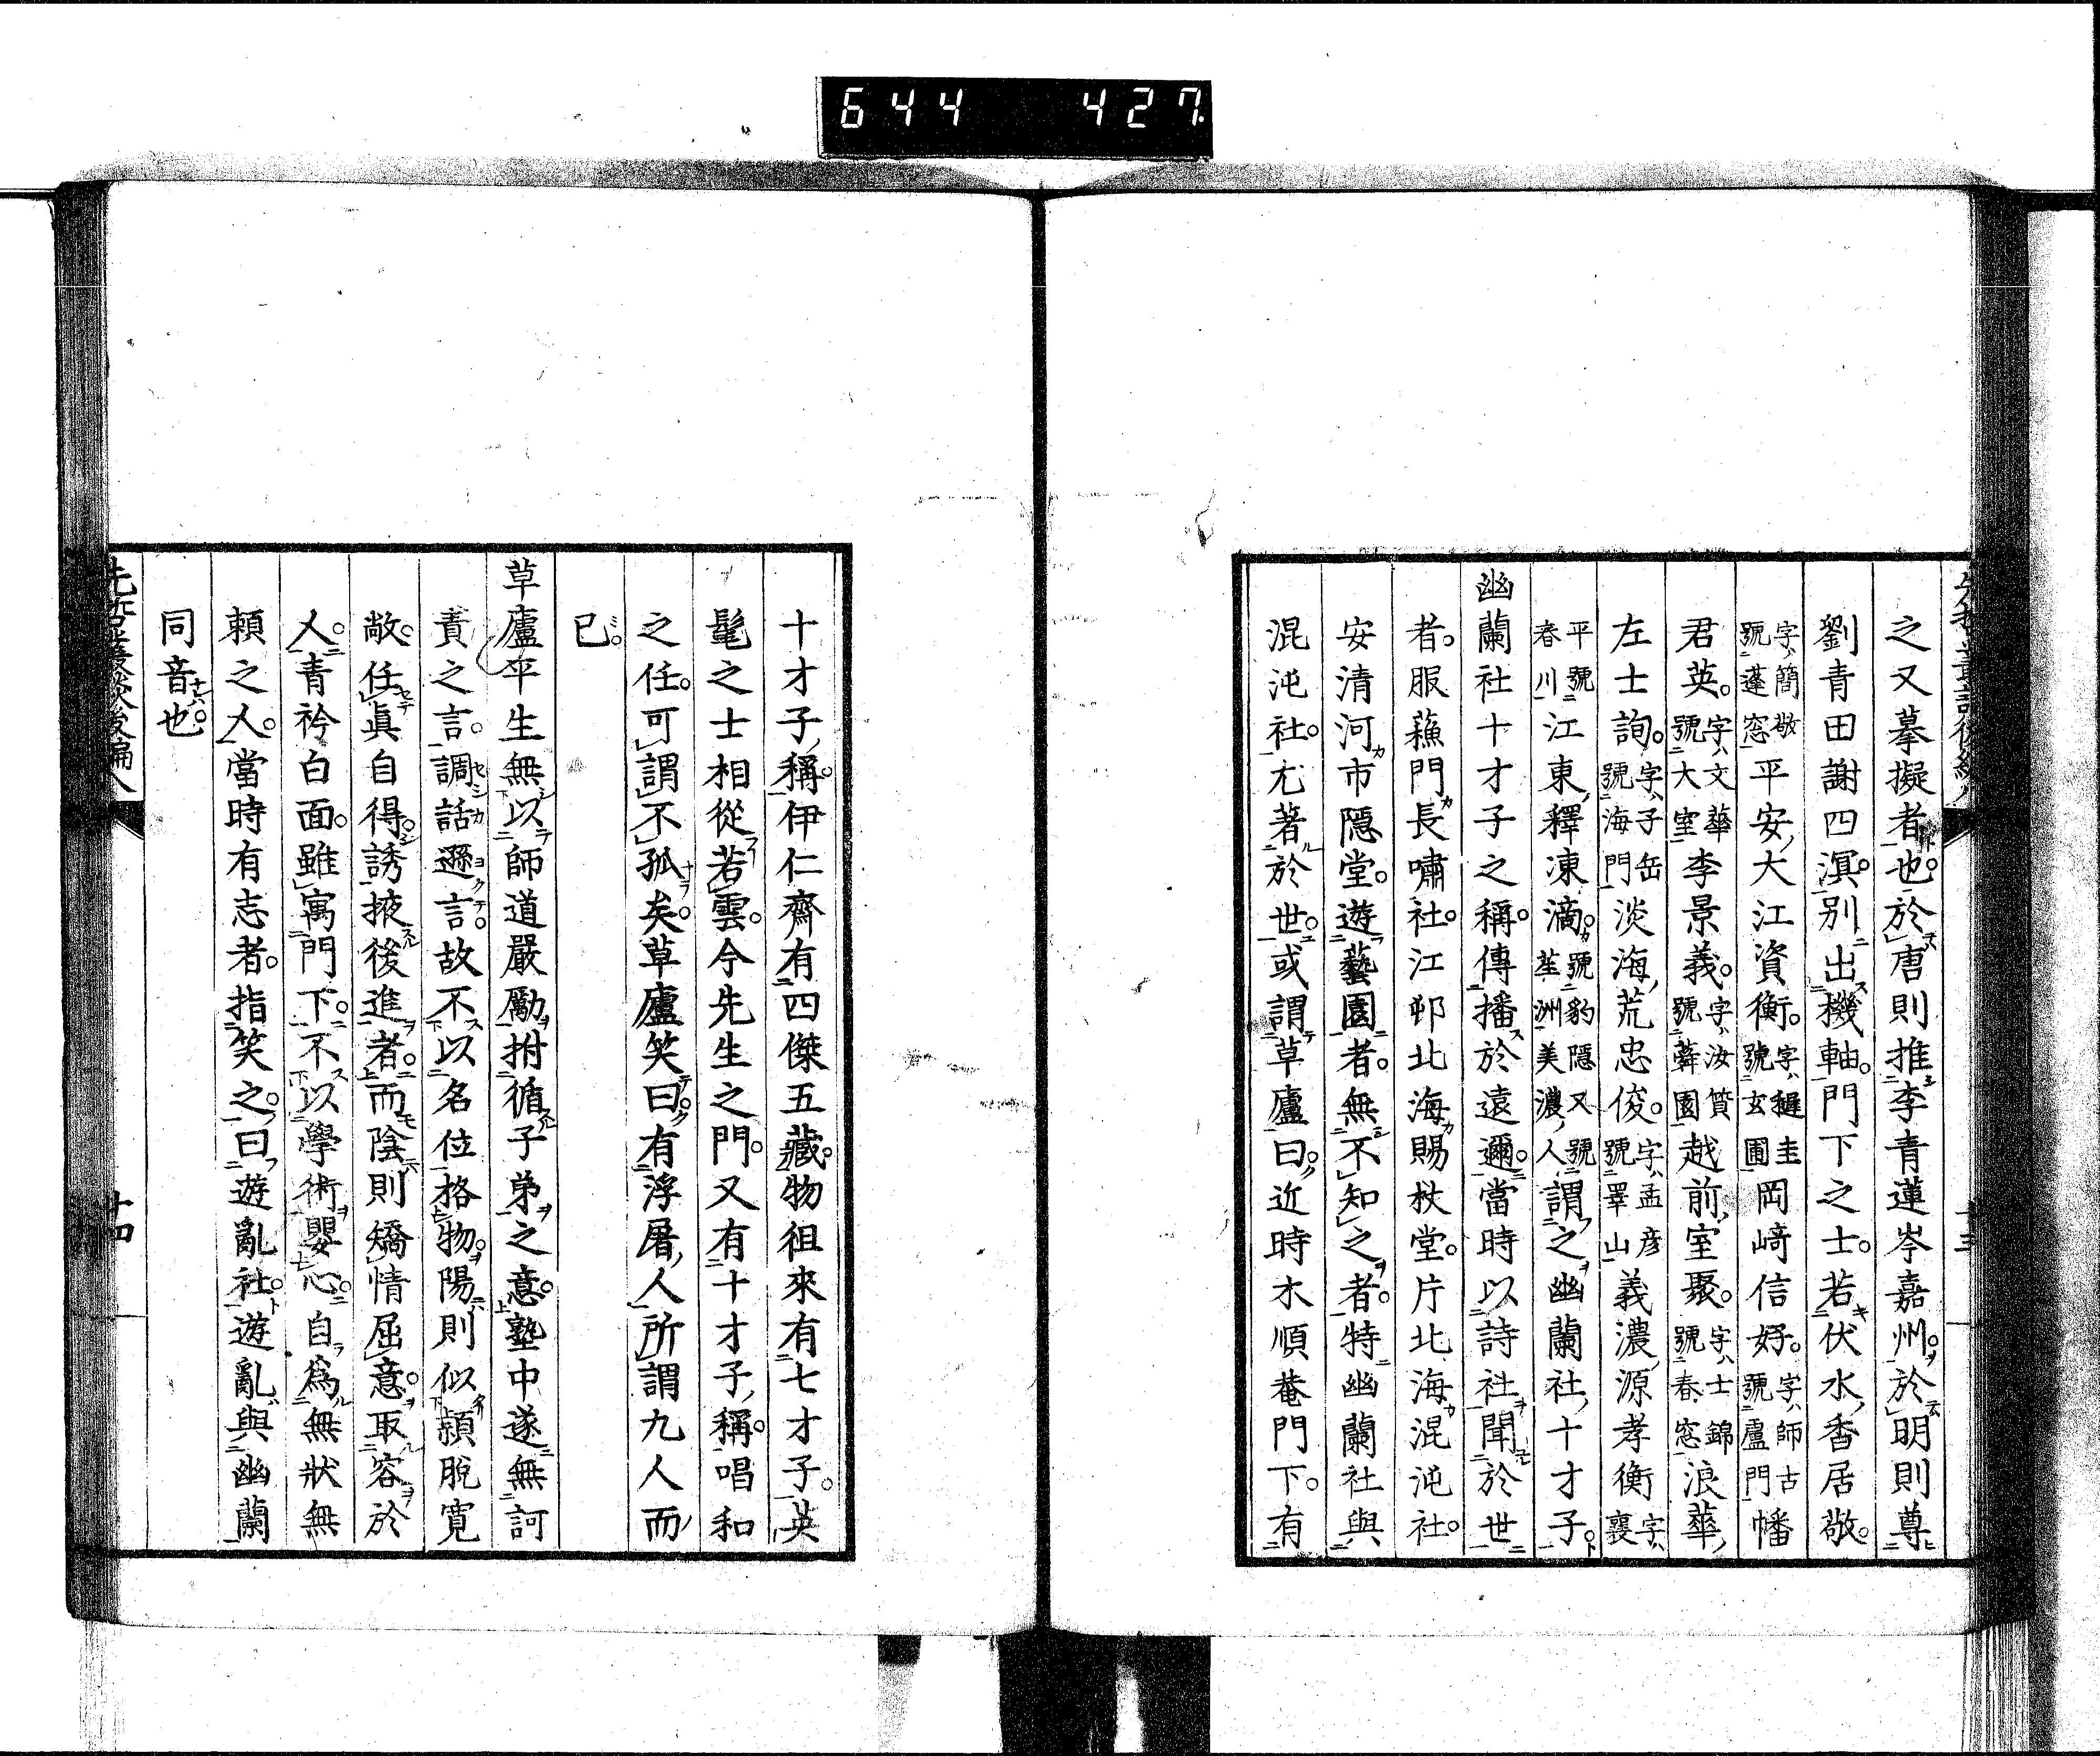 644 427
之又摹擬者也於唐則推李青蓮岑嘉州於明則尊
劉青田謝四溟別出機軸門下之士若伏水香居敬
字簡敬號蓬窓平安大江資衡字穉圭號玄圃岡﨑信好字師古號盧門幡
君英字文華號大室李景義字汝質號蕣園越前室聚字士錦號春窓浪華
左士詢字子岳號海門淡海荒忠俊字孟彦號睪山義濃源孝衡字襄
平號春川江東釋凍滴號豹隱又號茥洲美濃人謂之幽蘭社十才子
幽蘭社十才子之稱傳播於遠邇當時以詩社聞於世
者服蘓門長嘯社江邨北海賜杖堂片北海混沌社
安清河市隱堂遊藝園者無不知之者特幽蘭社與
混沌社尤著於世或謂草廬曰近時木順菴門下有
十三
十才子稱伊仁齋有四傑五藏物徂來有七才子英
髦之士相從若雲今先生之門又有十才子稱唱和
之任可謂不孤矣草廬笑曰有浮屠人所謂九人而
已
草廬平生無以師道嚴勵拊循子弟之意塾中遂無訶
責之言調話遜言故不以名位格物陽則似頴脫寛
敞任眞自得誘掖後進者而陰則矯情屈意取容於
人青衿白面雖寓門下不以學術嬰心自爲無狀無
賴之人當時有志者指笑之曰遊亂社遊亂與幽蘭
同音也
先哲叢談後編八
十四